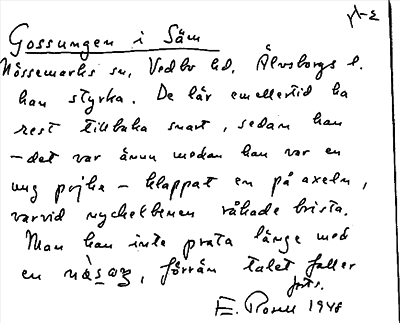 Gossungen i Säm
Nössemarks sn, Vedbo hd, Älvsborgs l.
han styrka. De lär emellertid ha
rest tillbaka snart, sedan han
– det var ännu medan han var en
ung pojke – klappat en på axeln,
varvid nyckelbenen råkade brista.
Man kan inte prata länge med
en nåsag, förrän talet faller
forts.
E. 1948